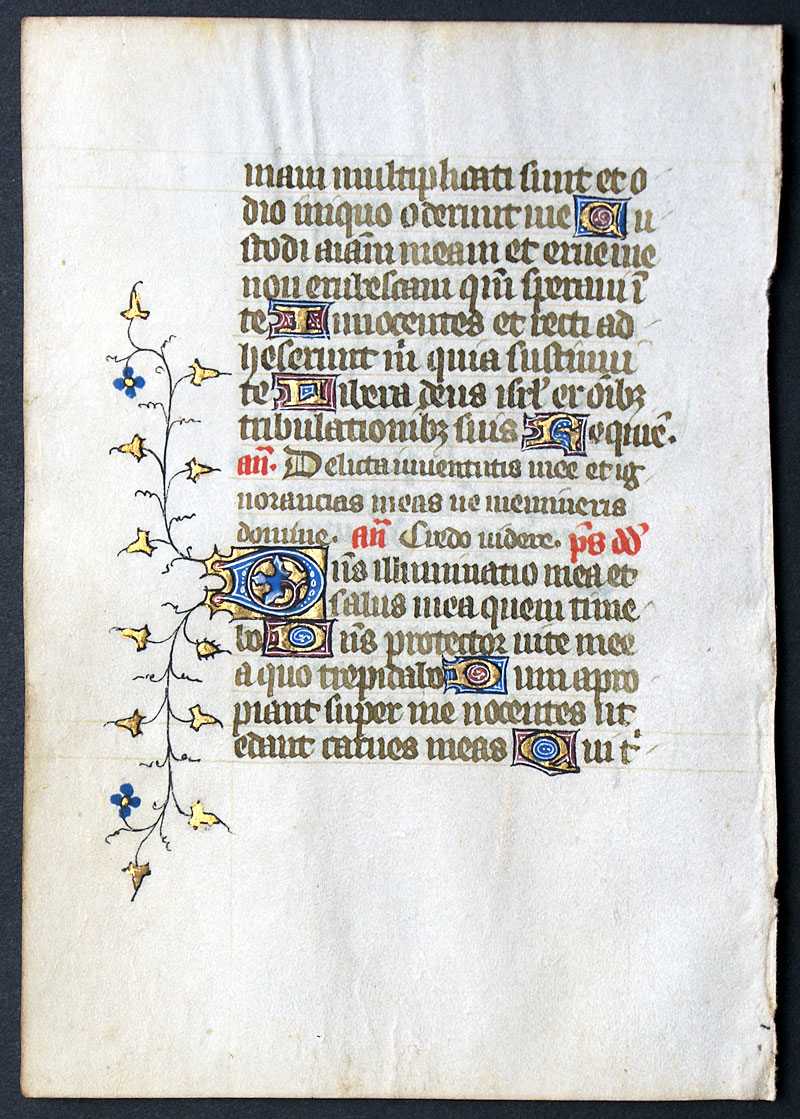 niam multiplicati sunt et o
dio iniquo oderunt me Cu
stodi aīam meam et erue me
non erubescam qm̄ speraui ī
te Innocentes et recti ad
heserunt m̄ quia sustinui
te Libera deus isrl̄ ex oīb3
tribulationib3 suis Requiē.
an̄. Delicta iuuentutis mee et ig
norancias meas ne memineris
domine. an̄ Credo uidere. p̄s dd̄
Dn̄s illuminatio mea et
salus mea quem time
bo Dn̄s protector uite mee
a quo trepidabo Dum apro
piant super me nocentes ut
edant carnes meas Qui t̄